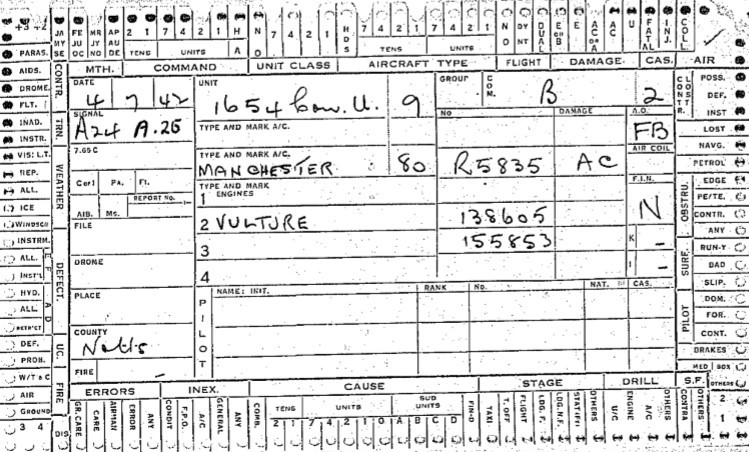 +3 +2 JA FE MR AP 2 1 7 4 2 1 H N 7 4 2 1 H 7 4 2 1 7 4 2 1 N DY DUAL E E AC AC U FATAL INJ. COLL.
MY JU JY AU TENS UNITS A O DS TENS UNITS O NT OR B OR A
PARAS. SE OC NO DE
MTH. COMMAND UNIT CLASS AIRCRAFT TYPE FLIGHT DAMAGE CAS. AIR
AIDS. CONTR. DATE UNIT GROUP COM. CLOSE POSS.
DROME. 4 7 42 1654 Con. U. 9 B 2 CONSTR. DEF.
FLT. SIGNAL NO DAMAGE A.O. INST
INAD. TRN. A24 A.26 TYPE AND MARK A/C. FB LOST
INSTR. AIR COIL NAVG.
VIS: L.T. 7.65C TYPE AND MARK A/C.
REP. WEATHER MANCHESTER 80 R5835 AC PETROL
ALL. Cat PA. Ft. TYPE AND MARK F.I.N. OBSTRU. EDGE
ICE REPORT No. 1 ENGINES N PE/TE.
WINDSCN AIB. Ms. CONTR.
INSTRM. FILE 2 VULTURE 138605 ANY
ALL. DEFECT. 3 155853 K - SURF. RUN-Y
INST'L DROME 4 I - BAD
HYD. PLACE PILOT NAME: INIT. RANK NO. NAT. CAS. SLIP.
ALL PILOT DOM.
RETR'CT COUNTY FOR.
DEF. UC. Notts CONT.
PROB. BRAKES
W/T & C FIRE FIRE - MED BOX
AIR ERRORS INEX. CAUSE STAGE DRILL S.F. OTHERS
GROUND GR.CARE CARE AIRMAN ERROR ANY CONDIT F.P.O. A/C GENERAL ANY COMB. TENS UNITS SUB UNITS FIN-D TAXI T. OFF FLIGHT LDG. F. LDG.N.F. OTHERS U/C ENGINE A/C OTHERS CONTRA OTHERS 2
3 4 DIS 2 1 7 4 2 1 0 A B C D 1